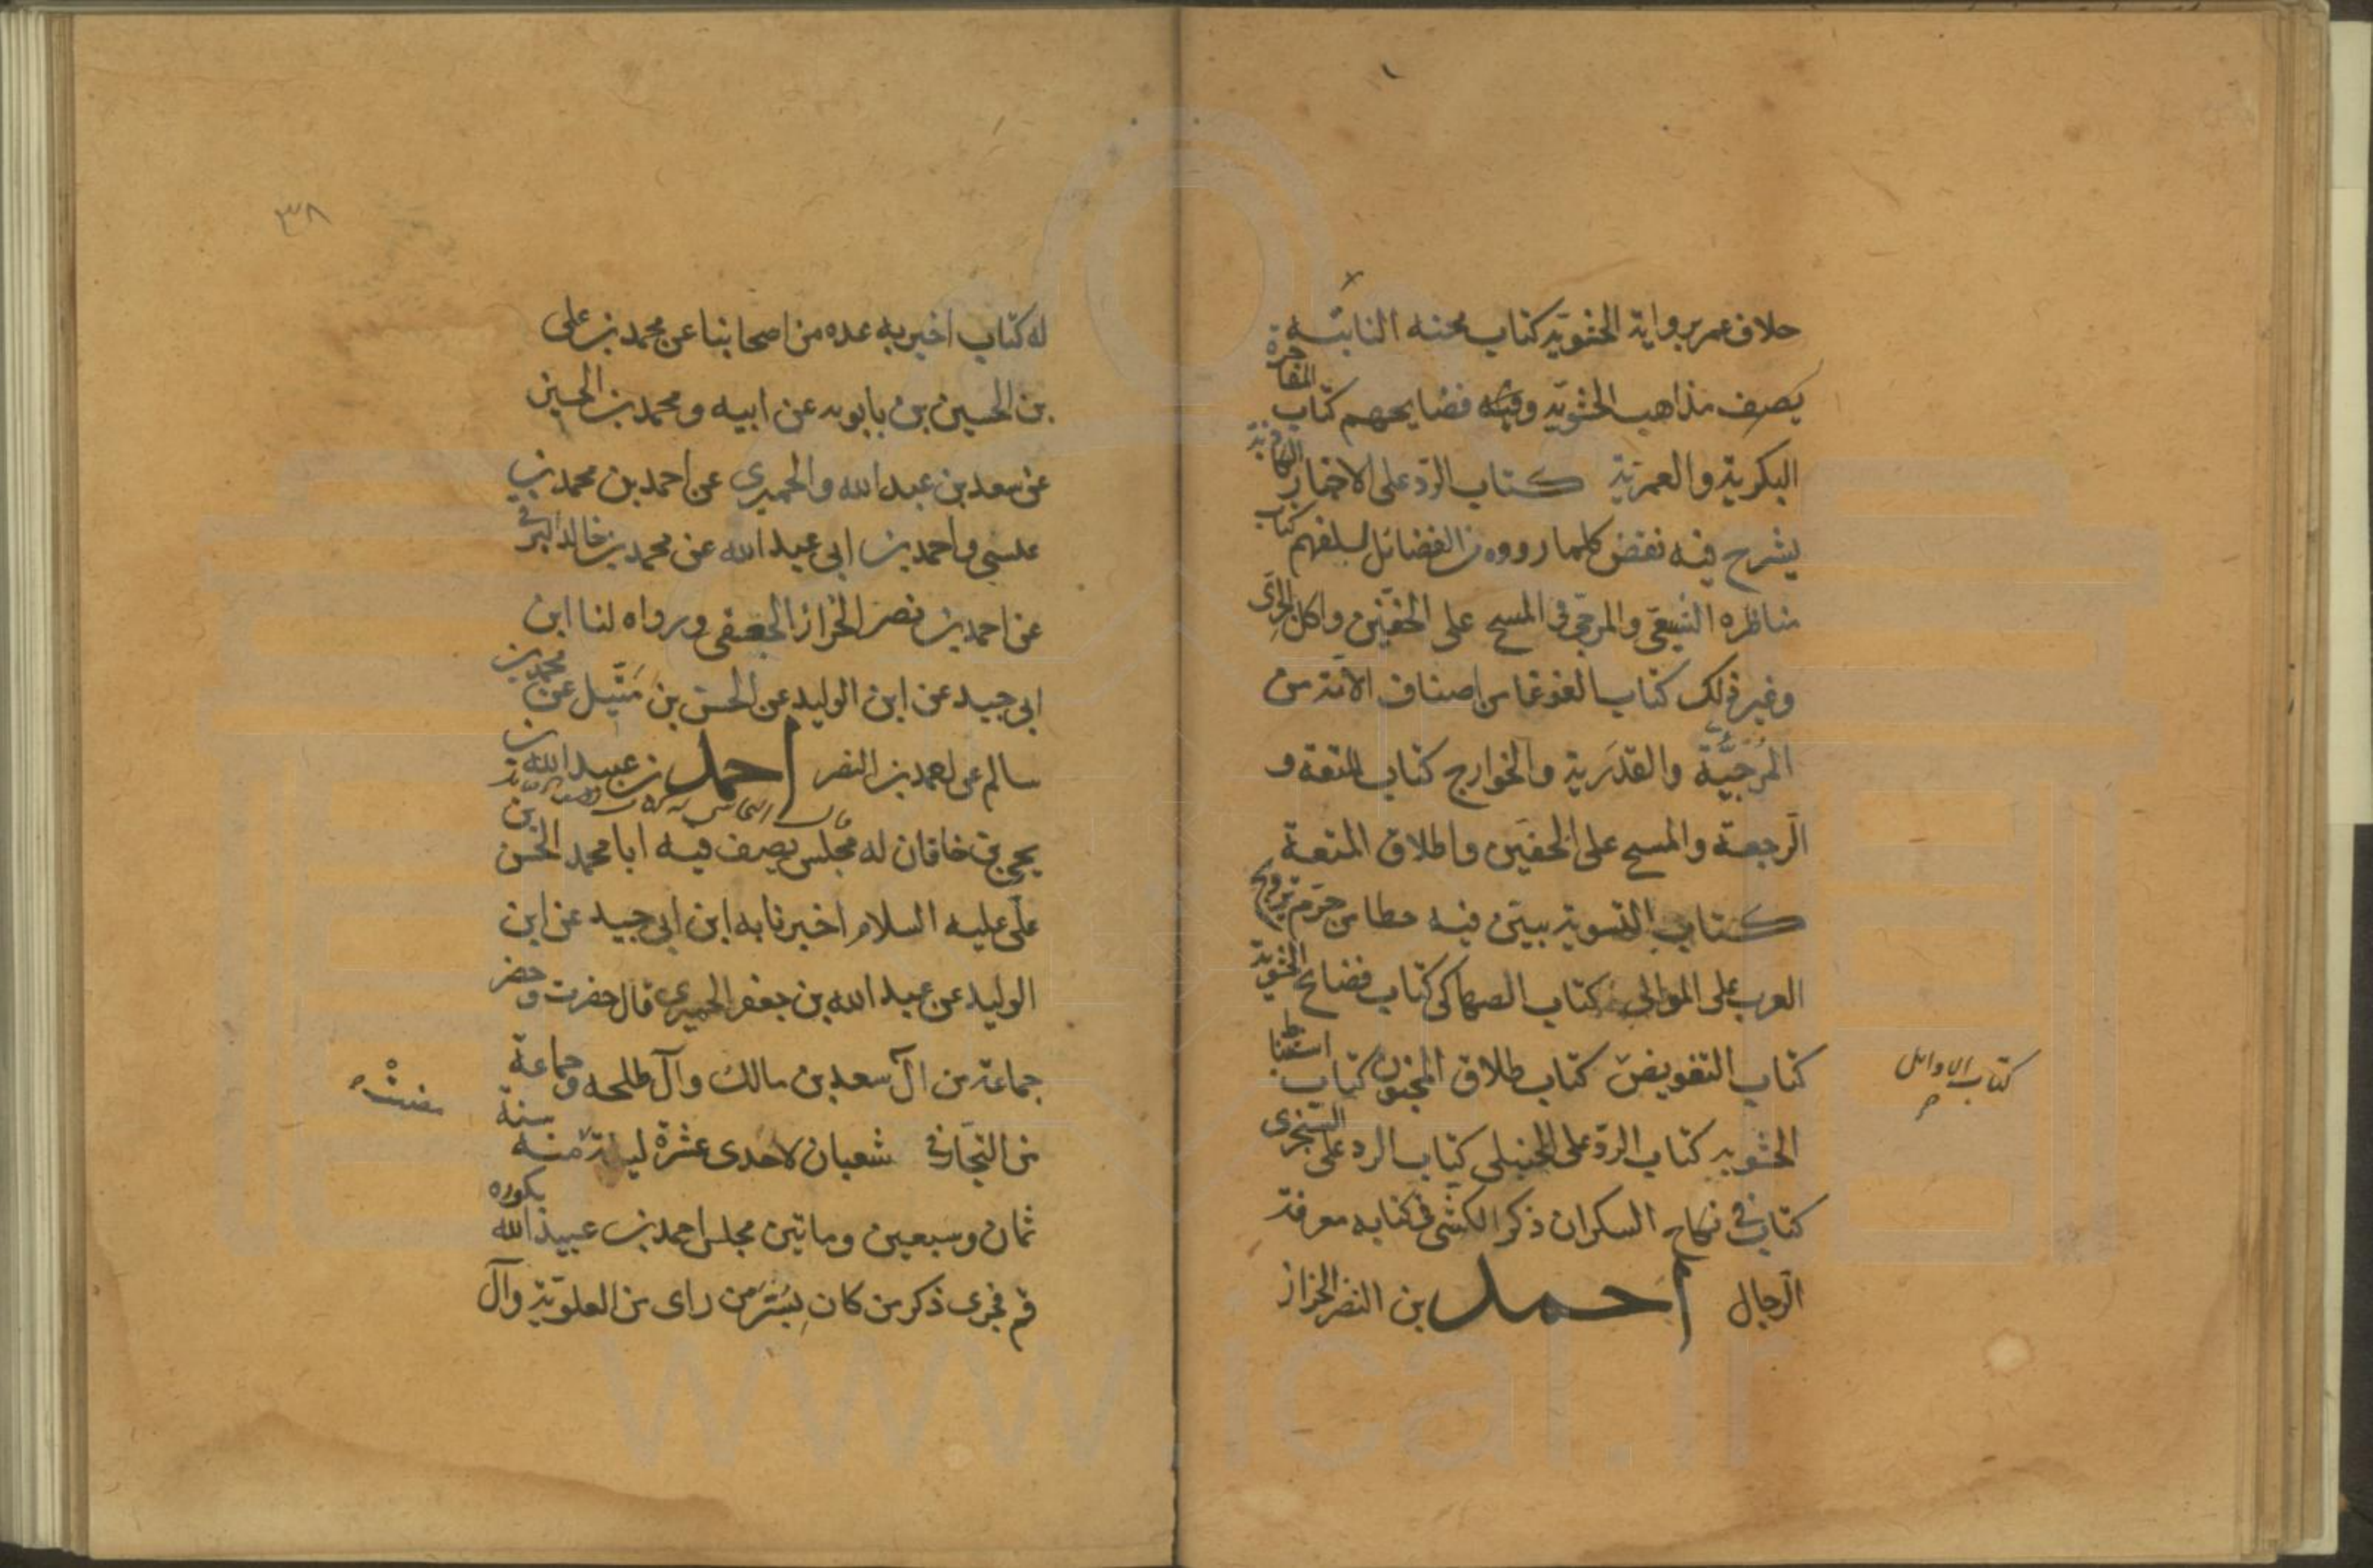 خلاف عمر برواية الحشوية كتاب محنة النابتة
يصف مذاهب الحشوية وفيه فضايحهم كتاب المفاخرة
البكرية والعمرية كتاب الرد على الاخبار الكاذبة
يشرح فيه نقض كلما رووه من الفضائل لسلفهم كتاب
مناظره الشيعي والمرجي في المسح على الخفين واكل الجرى
وغير ذلك كتاب الغوغا من اصناف الامة من
المرجية والقدرية والخوارج كتاب المتعة و
الرجعة والمسح على الخفين واطلاق المتعة
كتاب التسوية يبين فيه خطا من حرم تزويج
العرب على الموالي كتاب الصهاكى كتاب فضايح الحشوية
كتاب التفويض كتاب طلاق المجنون كتاب استنباط
كتاب الاوائل
الحشوية كتاب الرد على الحنبلى كتاب الرد على السنجرى
كتاب في نكاح السكران ذكر الكشى في كتابه معرفة
الرجال احمد بن النضر الخزاز
٣٨
له كتاب اخبر به عده من اصحابنا عن محمد بن على
بن الحسين بن بابويه عن ابيه ومحمد بن الحسين
عن سعد بن عبد الله والحميرى عن احمد بن محمد بن
عيسى واحمد بن ابي عبد الله عن محمد بن خالد البرقى
عن احمد بن نصر الخزاز الجعفى ورواه لنا ابن
ابى جيد عن ابن الوليد عن الحسن بن متيل عن محمد بن
سالم عن احمد بن النضر احمد بن عبيد الله بن
قال النجاشى
يحيى بن خاقان له مجلس يصف فيه ابا محمد الحسن بن
على عليه السلام اخبرنا به ابن ابى جيد عن ابن
الوليد عن عبد الله بن جعفر الحميرى قال حضرت وحضر
جماعة من آل سعد بن مالك وآل طلحه وجماعة
من التجار في شعبان لاحدى عشرة ليلة منه سنة
ثمان وسبعين وماتين مجلس احمد بن عبيد الله بكوره
قم فجرى ذكر من كان بسر من راى من العلوية وآل